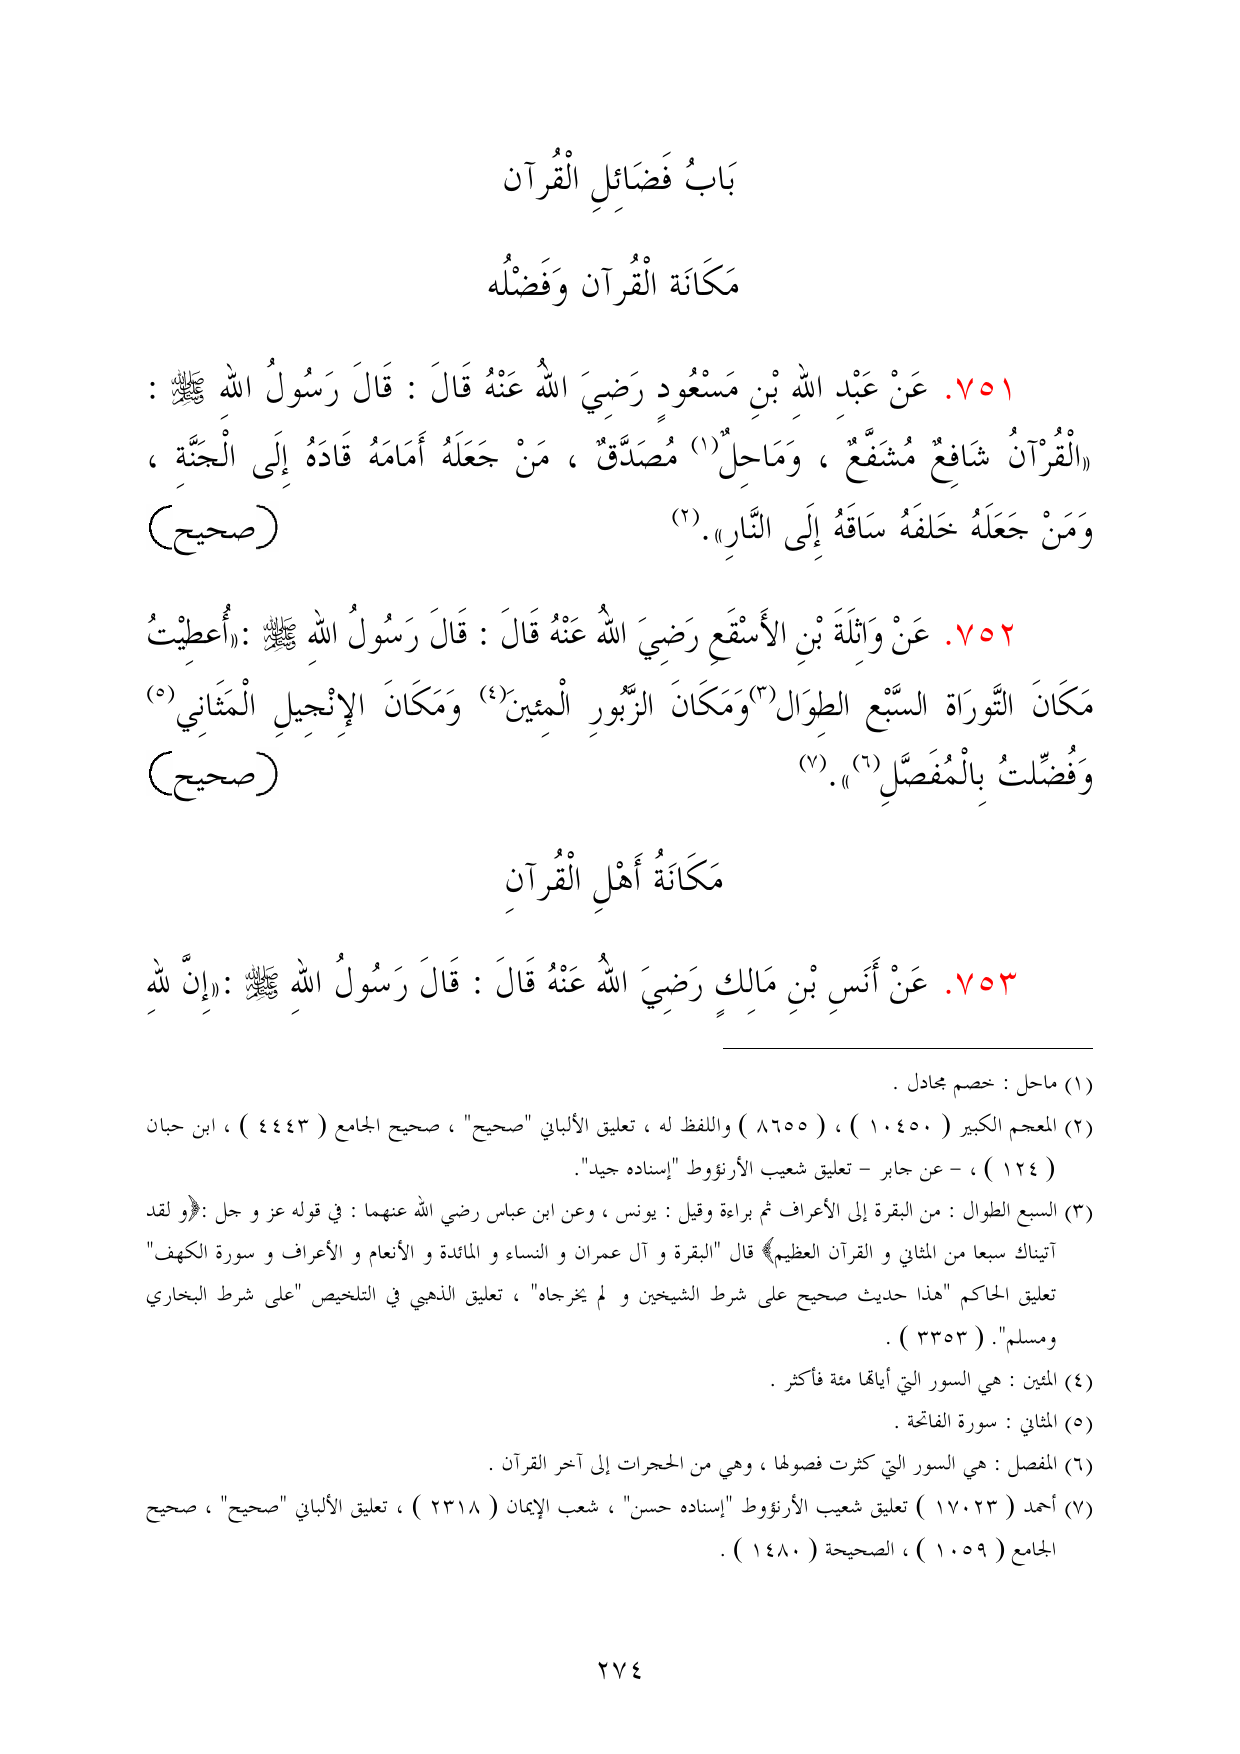 بَابُ فَضَائِلِ الْقُرآن
مَكَانَة الْقُرآن وَفَضْلُه
٧٥١. عَنْ عَبْدِ اللهِ بْنِ مَسْعُودٍ رَضِيَ اللهُ عَنْهُ قَالَ : قَالَ رَسُولُ اللهِ ﷺ :
«الْقُرْآنُ شَافِعٌ مُشَفَّعٌ ، وَمَاحِلٌ(١) مُصَدَّقٌ ، مَنْ جَعَلَهُ أَمَامَهُ قَادَهُ إِلَى الْجَنَّةِ ،
وَمَنْ جَعَلَهُ خَلفَهُ سَاقَهُ إِلَى النَّارِ».(٢) (صحيح)
٧٥٢. عَنْ وَاثِلَةَ بْنِ الأَسْقَعِ رَضِيَ اللهُ عَنْهُ قَالَ : قَالَ رَسُولُ اللهِ ﷺ :«أُعطِيْتُ
مَكَانَ التَّورَاة السَّبْع الطِوَال(٣)وَمَكَانَ الزَّبُورِ الْمِئينَ(٤) وَمَكَانَ الإِنْجِيلِ الْمَثَانِي(٥)
وَفُضِّلتُ بِالْمُفَصَّلِ(٦)».(٧) (صحيح)
مَكَانَةُ أَهْلِ الْقُرآنِ
٧٥٣. عَنْ أَنَسِ بْنِ مَالِكٍ رَضِيَ اللهُ عَنْهُ قَالَ : قَالَ رَسُولُ اللهِ ﷺ :«إِنَّ للهِ
(١) ماحل : خصم مجادل .
(٢) المعجم الكبير ( ١٠٤٥٠ ) ، ( ٨٦٥٥ ) واللفظ له ، تعليق الألباني "صحيح" ، صحيح الجامع ( ٤٤٤٣ ) ، ابن حبان
( ١٢٤ ) ، – عن جابر – تعليق شعيب الأرنؤوط "إسناده جيد".
(٣) السبع الطوال : من البقرة إلى الأعراف ثم براءة وقيل : يونس ، وعن ابن عباس رضي الله عنهما : في قوله عز و جل :﴿و لقد
آتيناك سبعا من المثاني و القرآن العظيم﴾ قال "البقرة و آل عمران و النساء و المائدة و الأنعام و الأعراف و سورة الكهف"
تعليق الحاكم "هذا حديث صحيح على شرط الشيخين و لم يخرجاه" ، تعليق الذهبي في التلخيص "على شرط البخاري
ومسلم". ( ٣٣٥٣ ) .
(٤) المئين : هي السور التي أياتها مئة فأكثر .
(٥) المثاني : سورة الفاتحة .
(٦) المفصل : هي السور التي كثرت فصولها ، وهي من الحجرات إلى آخر القرآن .
(٧) أحمد ( ١٧٠٢٣ ) تعليق شعيب الأرنؤوط "إسناده حسن" ، شعب الإيمان ( ٢٣١٨ ) ، تعليق الألباني "صحيح" ، صحيح
الجامع ( ١٠٥٩ ) ، الصحيحة ( ١٤٨٠ ) .
٢٧٤